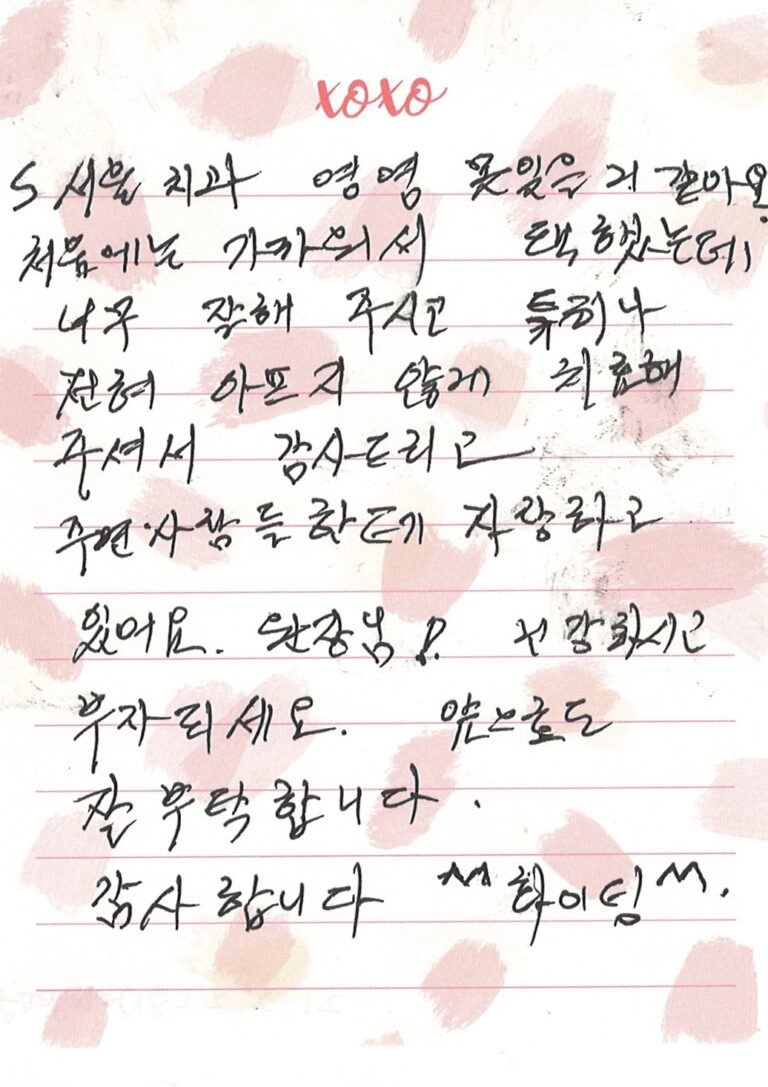 xoxo
S 서울 치과 영영 못잊을 거 같아요.
처음에는 가까워서 택했는데,
너무 잘해 주시고 특히나
전혀 아프지 않게 치료해
주셔서 감사드리고
주변사람들한테 자랑하고
있어요. 원장님! 건강하시고
부자되세요. 앞으로도
잘 부탁합니다.
감사합니다 ^^화이팅^^.